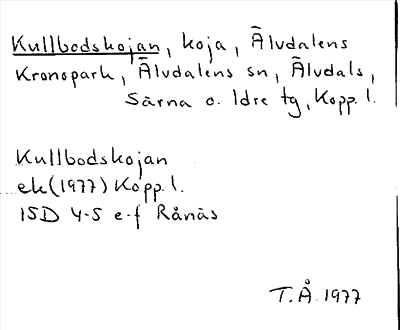 Kullbodskojan, koja, Älvdalens
Kronopark, Älvdalens sn, Älvdals,
Särna o. Idre tg, Kopp. l.
Kullbodskojan
ek (1977) Kopp. l.
15D 4-5 e-f Rånäs
T.Å. 1977